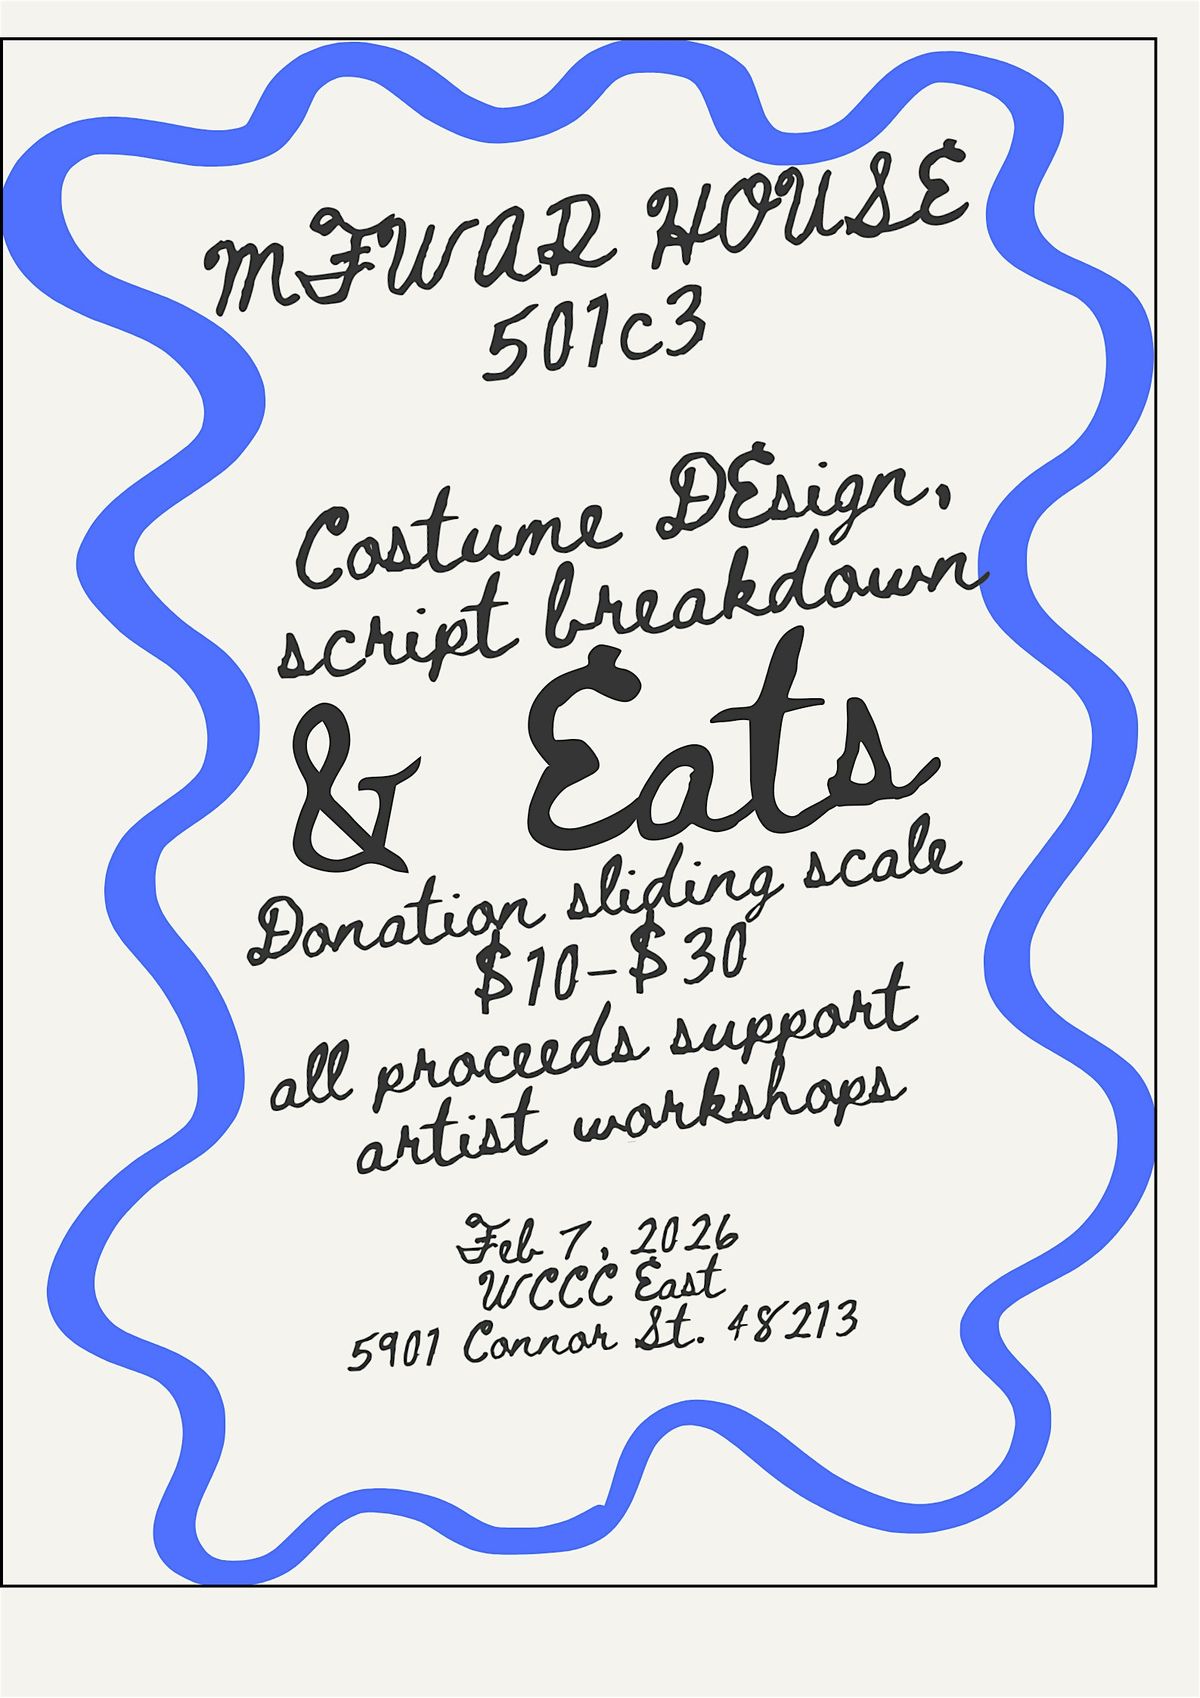 MFWAR HOUSE
501c3
Costume DEsign,
script breakdown
& Eats
Donation sliding scale
$10-$30
all proceeds support
artist workshops
Feb 7, 2026
WCCC East
5901 Connor St. 48213